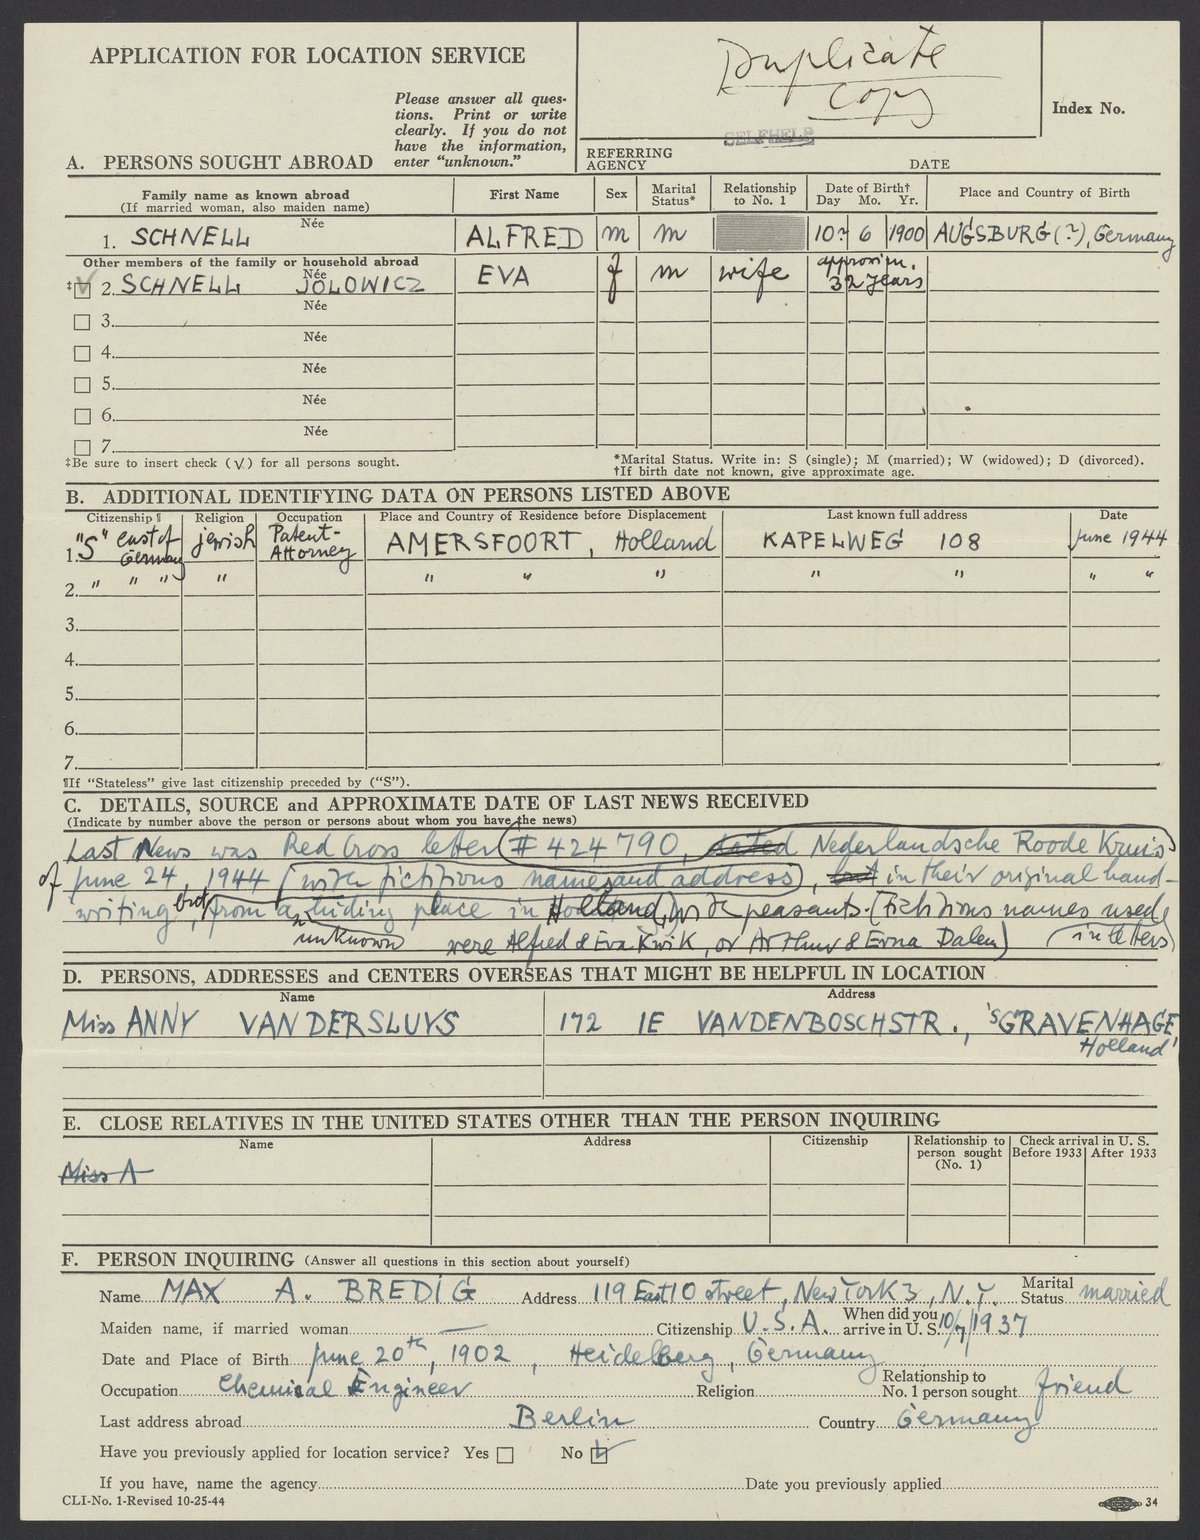 APPLICATION FOR LOCATION SERVICE
Please answer all ques-
tions. Print or write
clearly. If you do not
have the information,
enter "unknown."
Duplicate
Copy
SELFHELP
Index No.
REFERRING
AGENCY
DATE
A. PERSONS SOUGHT ABROAD
Family name as known abroad
(If married woman, also maiden name)
First Name
Sex
Marital
Status*
Relationship
to No. 1
Date of Birth†
Day Mo. Yr.
Place and Country of Birth
Née
1. SCHNELL ALFRED m m 10? 6 1900 AUGSBURG (?), Germany
Other members of the family or household abroad
Née
‡ 2. SCHNELL JOLOWICZ EVA f m wife approxim. 32 years
Née
3.
Née
4.
Née
5.
Née
6.
Née
7.
‡Be sure to insert check (√) for all persons sought.
*Marital Status. Write in: S (single); M (married); W (widowed); D (divorced).
†If birth date not known, give approximate age.
B. ADDITIONAL IDENTIFYING DATA ON PERSONS LISTED ABOVE
Citizenship ¶ Religion Occupation Place and Country of Residence before Displacement Last known full address Date
1. "S" east of Germany jewish Patent-Attorney AMERSFOORT, Holland KAPELWEG 108 June 1944
2. " " " " " " " " " " "
3.
4.
5.
6.
7.
¶If "Stateless" give last citizenship preceded by ("S").
C. DETAILS, SOURCE and APPROXIMATE DATE OF LAST NEWS RECEIVED
(Indicate by number above the person or persons about whom you have the news)
Last News was Red Cross letter # 424790, dated Nederlandsche Roode Kruis
of June 24, 1944 (with fictitious names and address), but in their original hand-
writing but from a hiding place in Holland, with peasants. (Fictitious names used
unknown were Alfred & Eva Kwik, or Arthur & Erna Dalen) in letters
D. PERSONS, ADDRESSES and CENTERS OVERSEAS THAT MIGHT BE HELPFUL IN LOCATION
Name Address
Miss ANNY VAN DER SLUYS 172 IE VANDENBOSCHSTR., 'SGRAVENHAGE
Holland
E. CLOSE RELATIVES IN THE UNITED STATES OTHER THAN THE PERSON INQUIRING
Name
Address
Citizenship
Relationship to
person sought
(No. 1)
Check arrival in U. S.
Before 1933 After 1933
Miss A
F. PERSON INQUIRING (Answer all questions in this section about yourself)
Name MAX A. BREDIG Address 119 East 10 street, New York 3, N.Y. Marital Status married
Maiden name, if married woman — Citizenship U.S.A. When did you arrive in U. S. 10/7/1937
Date and Place of Birth June 20th, 1902, Heidelberg, Germany
Occupation Chemical Engineer Religion Relationship to No. 1 person sought friend
Last address abroad Berlin Country Germany
Have you previously applied for location service? Yes No
If you have, name the agency Date you previously applied
CLI-No. 1-Revised 10-25-44
34